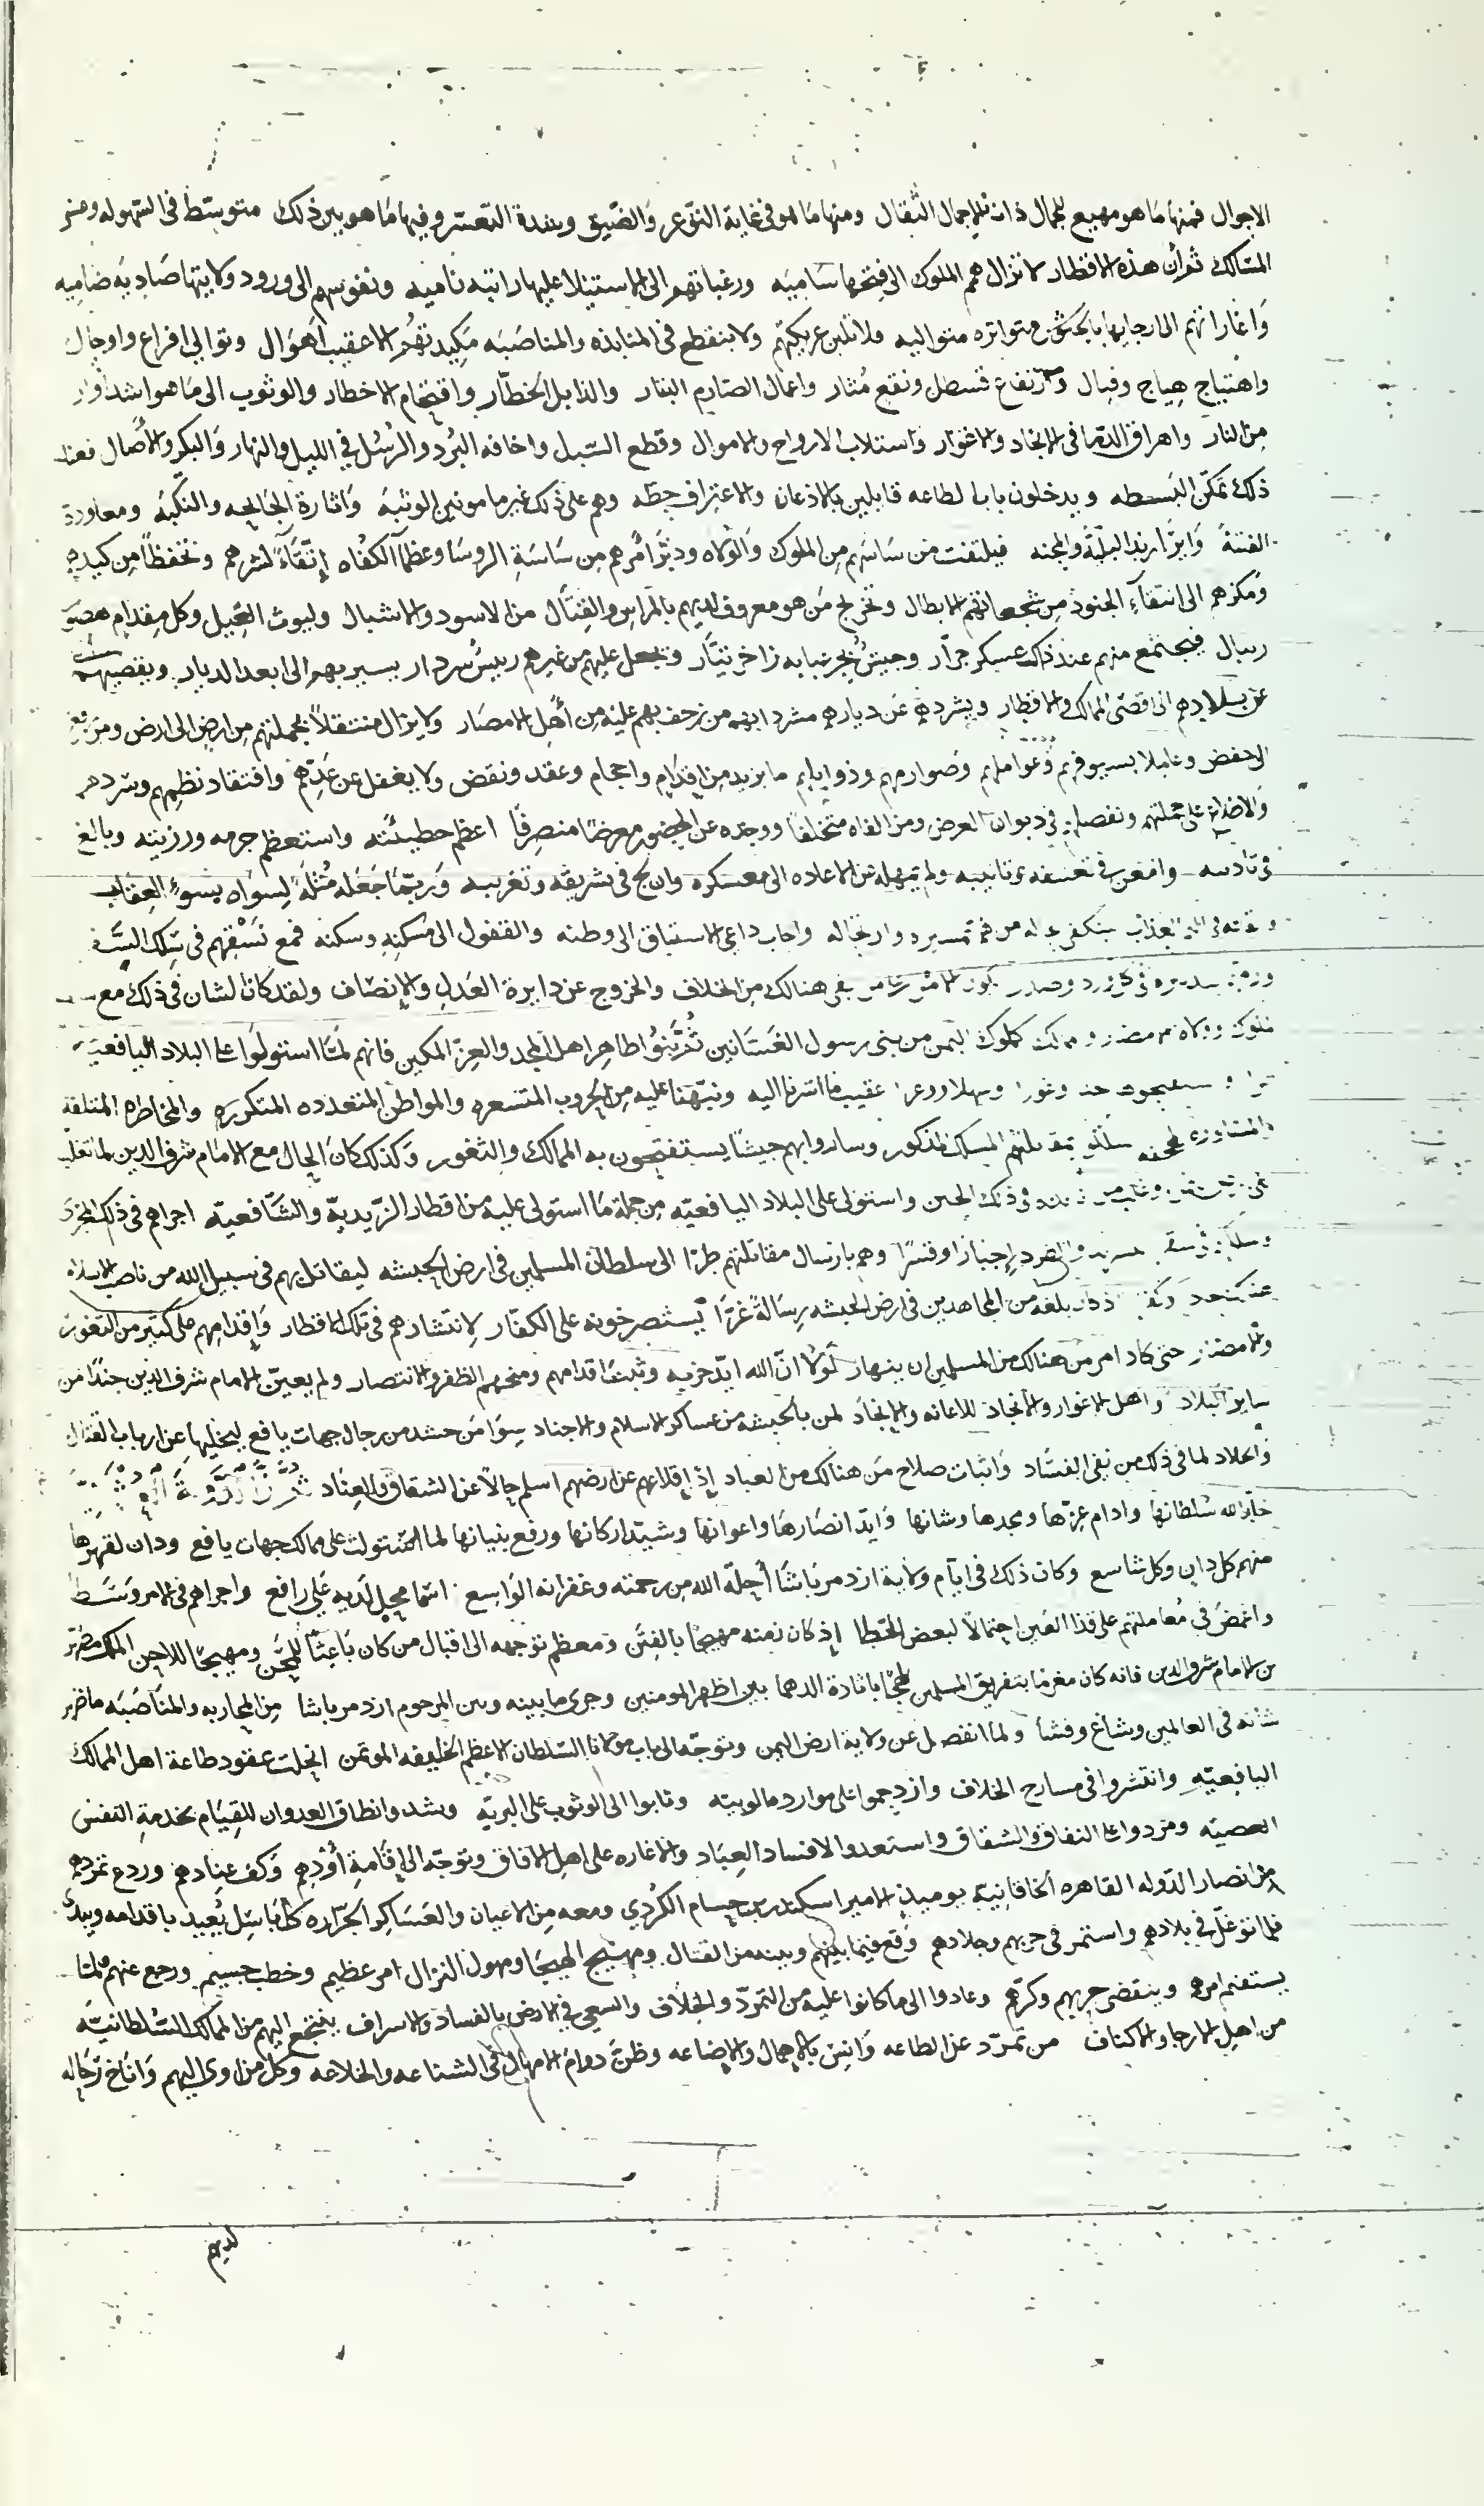 الاجوال فمنها ما هو مهيع للجمال ذات الاحمال الثقال ومنها ما هو فى غاية التوعر والضيق وشدة التعسر وفيها ما هو بين ذلك متوسط فى السهوله
المسالك ثم ان هذه الاقطار لا تزال همم الملوك الى فتحها ساميه ورغباتهم الى الاستيلا عليها راتبه ناميه ونفوسهم الى ورود ولايتها صاديه ضاميه
واغاراتهم الى ارجايها بالجيش متواتره متواليه ولا تلين عريكتهم ولا ينقطع فى المنابذه والمناصبه مكيدتهم الا عقيب اهوال وتوالى افزاع واوجال
واهتياج هياج وقبال وارتفاع قسطل ونقع مثار واعمال الصارم البتار والذابل الخطار واقتحام الاخطار والوثوب الى ما هو اشد اوار
من النار واهراق الدما فى الانجاد والاغوار واستلاب الارواح والاموال وقطع السبل واخافه البرد والرسل فى الليل والنهار والبكر والآصال فعند
ذلك تمكن البسطه ويدخلون باب الطاعه قابلين بالاذعان والاعتراف حطه وهم على ذلك غير مامونين الوثبه واثارة الجايحه والنكبه ومعاودة
الفتنة وايرا زند البليه والمحنه فيلتفت من ساسهم من الملوك والولاه ودبر امرهم من ساسة الروسا وعظما الكفاه اتقاء لشرهم وتحفظا من كيدهم
ومكرهم الى انتقاء الجنود من شجعانهم الابطال وتخريج من هو معروف لديهم بالمراس والقتال من الاسود والاشبال وليوث الغيل وكل مقدام هصور
ريبال فيجتمع منهم عند ذلك عسكر جرار وجيش بحر عبابه زاخر تيار ويجعل عليهم من غيرهم رييس سردار يسير بهم الى ابعد الديار ويقصيهم
عن بلادهم الى اقصى الممالك والاقطار ويشردهم عن ديارهم مشردا بهم من زحف بهم عليه من اهل الامصار ولا يزال متنقلا بجملتهم من ارض الى ارض ومن رفع
الى خفض وعاملا بسيوفهم وعواملهم وصوارمهم وذوابلهم ما يريد من اقدام واحجام وعقد ونقض ولا يغفل عن عدتهم وافتقاد نظمهم وسردهم
والاطلاع على جملتهم وتفصيلهم فى ديوان العرض ومن الفاه متخلفا ووجده عن الحضور معرضا منصرفا اعظم خطيئته واستعظم جرمه ورزيته وبالغ
فى تاديبه وامعن فى تعنيفه وتانيبه ولم يمهله عن الاعاده الى معسكره وان لج فى تشريقه وتغريبه وربما جعله مثلة لسواه بسوء العقاب
من ثم تسييره وارتحاله واجاب داعى الاشتياق الى وطنه والقفول الى مسكنه وسكنه فمع نسقهم فى سلك
بقى هنالك من الخلاف والخروج عن دايرة العدل والانصاف ولقد كان الشان فى ذلك مع
كملوك اليمن من بنى رسول الغسانين اطاهر اهل المجد والعز المكين فانهم لما استولوا على البلاد اليافعيه
وغورا وسهلا ووعرا عقيب ما اشرنا اليه ونبهنا عليه من الحروب المتسعره والمواطن المتعدده المتكرره والمخاطره المتلفه
المسلك المذكور وساروا بهم جيشا يستفتحون به الممالك والثغور وكذلك كان الحال مع الامام شرف الدين لما تغلب
فى ذلك الحين واستولى على البلاد اليافعيه من جملة ما استولى عليه من اقطار الزيديه والشافعيه اجراهم فى ذلك المجرى
اجبارا وقسرا وهم بارسال مقاتلتهم طرا الى سلطان المسلمين فى ارض الحبشه ليقاتل بهم فى سبيل الله من ناصب الاسلام
بلغه من المجاهدين فى ارض الحبشه رسالة غرا يستصرخونه على الكفار لانتشارهم فى تلك الاقطار واقدامهم على كثير من الثغور
والامصار حتى كاد امر من هنالك من المسلمين ان ينهار لولا ان الله ايد حزبه وثبت اقدامهم ومنحهم الظفر والانتصار ولم يعين الامام شرف الدين جندا من
ساير البلاد واهل الاغوار والانجاد للاعانه والانجاد لمن بالحبشه من عساكر الاسلام والاجناد سوا من حشد من رجال جهات يافع ليخليها عن ارباب القتال
والجلاد لما فى ذلك من نفى الفساد واثبات صلاح من هنالك من العباد اذ اقلاعهم عن ارضهم اسلم حالا عن الشقاق والعناد ثم ان الدولة
خلد الله سلطانها وادام عزها ومجدها وشانها وايد انصارها واعوانها وشيد اركانها ورفع بنيانها لما استولت على ممالك جهات يافع ودان لقهرها
منهم كل دان وكل شاسع وكان ذلك فى ايام ولاية ازدمر باشا احله الله من رحمته وغفرانه الواسع اسما محل لديه على رافع واجراهم فى الامر وسطا
واغمض فى معاملتهم على قذا العين احتمالا لبعض الخطا اذ كان زمنه مهيجا بالفتن ومعظم توجهه الى اقبال من كان باعثا للمحن ومهيجا للاحن الملك مطهر
بن الامام شرف الدين فانه كان مغرما بتفريق المسلمين لهجا باثارة الدهما بين اظهر المومنين وجرى ما بينه وبين المرحوم ازدمر باشا من المحاربه والمناصبه ما ظهر
شانه فى العالمين وشاع وفشا ولما انفصل عن ولاية ارض اليمن وتوجه الى باب مولانا السلطان الاعظم الخليفه الموتمن انحلت عقود طاعة اهل الممالك
اليافعيه وانتشروا فى مسارح الخلاف وازدحموا على موارد مالوبيه وثابوا الى الوثوب على البريه وشدوا نطاق العدوان للقيام بخدمة النفس
العصيه ومردوا على النفاق والشقاق واستعدوا لافساد العباد والاغاره على اهل الافاق وتوجه الى اقامة اودهم وكف عنادهم وردع تمردهم
من انصار الدوله القاهره الخاقانيه يوميذ الامير اسكندر بن حسام الكردى ومعه من الاعيان والعساكر الجراره كل باسل يعيد باقدامه ويبدى
فلما توغل فى بلادهم واستمر فى حربهم وجلادهم وقع فيما بينهم وبينه من القتال ومهيج الهيجا ومهول النزال امر عظيم وخطب جسيم ورجع عنهم ولما
يستقم امرهم وينقض حربهم وكرهم وعادوا الى ما كانوا عليه من التمرد والخلاف والسعى فى الارض بالفساد والاسراف ينتجع اليهم من الممالك السلطانيه
من اهل الارجا والاكناف من تمرد عن الطاعه وانس بالاهمال والاضاعه وظن دوام الامهال فى الشناعه والخلاعه وكل من اوى اليهم واناخ رحاله
لديهم